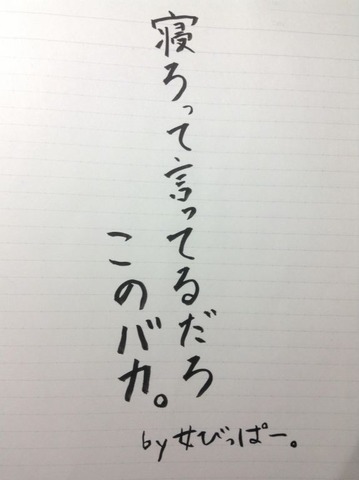 寝ろって言ってるだろ
このバカ。
by女びっぱー。